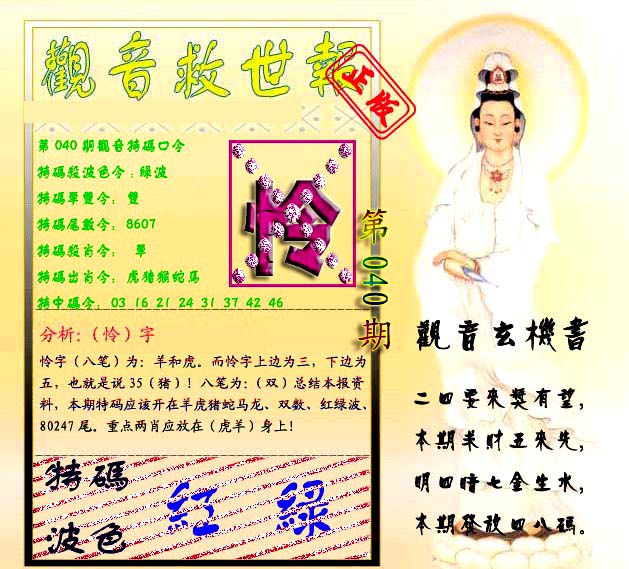 觀音救世報
正版
第 040 期觀音特碼口令
特碼殺波色令：綠波
特碼單雙令： 雙
特碼尾數令： 8607
特碼殺肖令： 單
特碼出肖令： 虎猪猴蛇馬
特中碼令： 03 16 21 24 31 37 42 46
怜
第040期
分析:（怜）字
怜字（八笔）为：羊和虎。而怜字上边为三，下边为
五，也就是说 35（猪）！八笔为：（双）总结本报资
料，本期特码应该开在羊虎猪蛇马龙、双数、红绿波、
80247 尾。重点两肖应放在（虎羊）身上！
特碼
波色
紅 綠
觀音玄機書
二四要來獎有望，
本期羊財五來先，
明四暗七金生水，
本期發放四八碼。